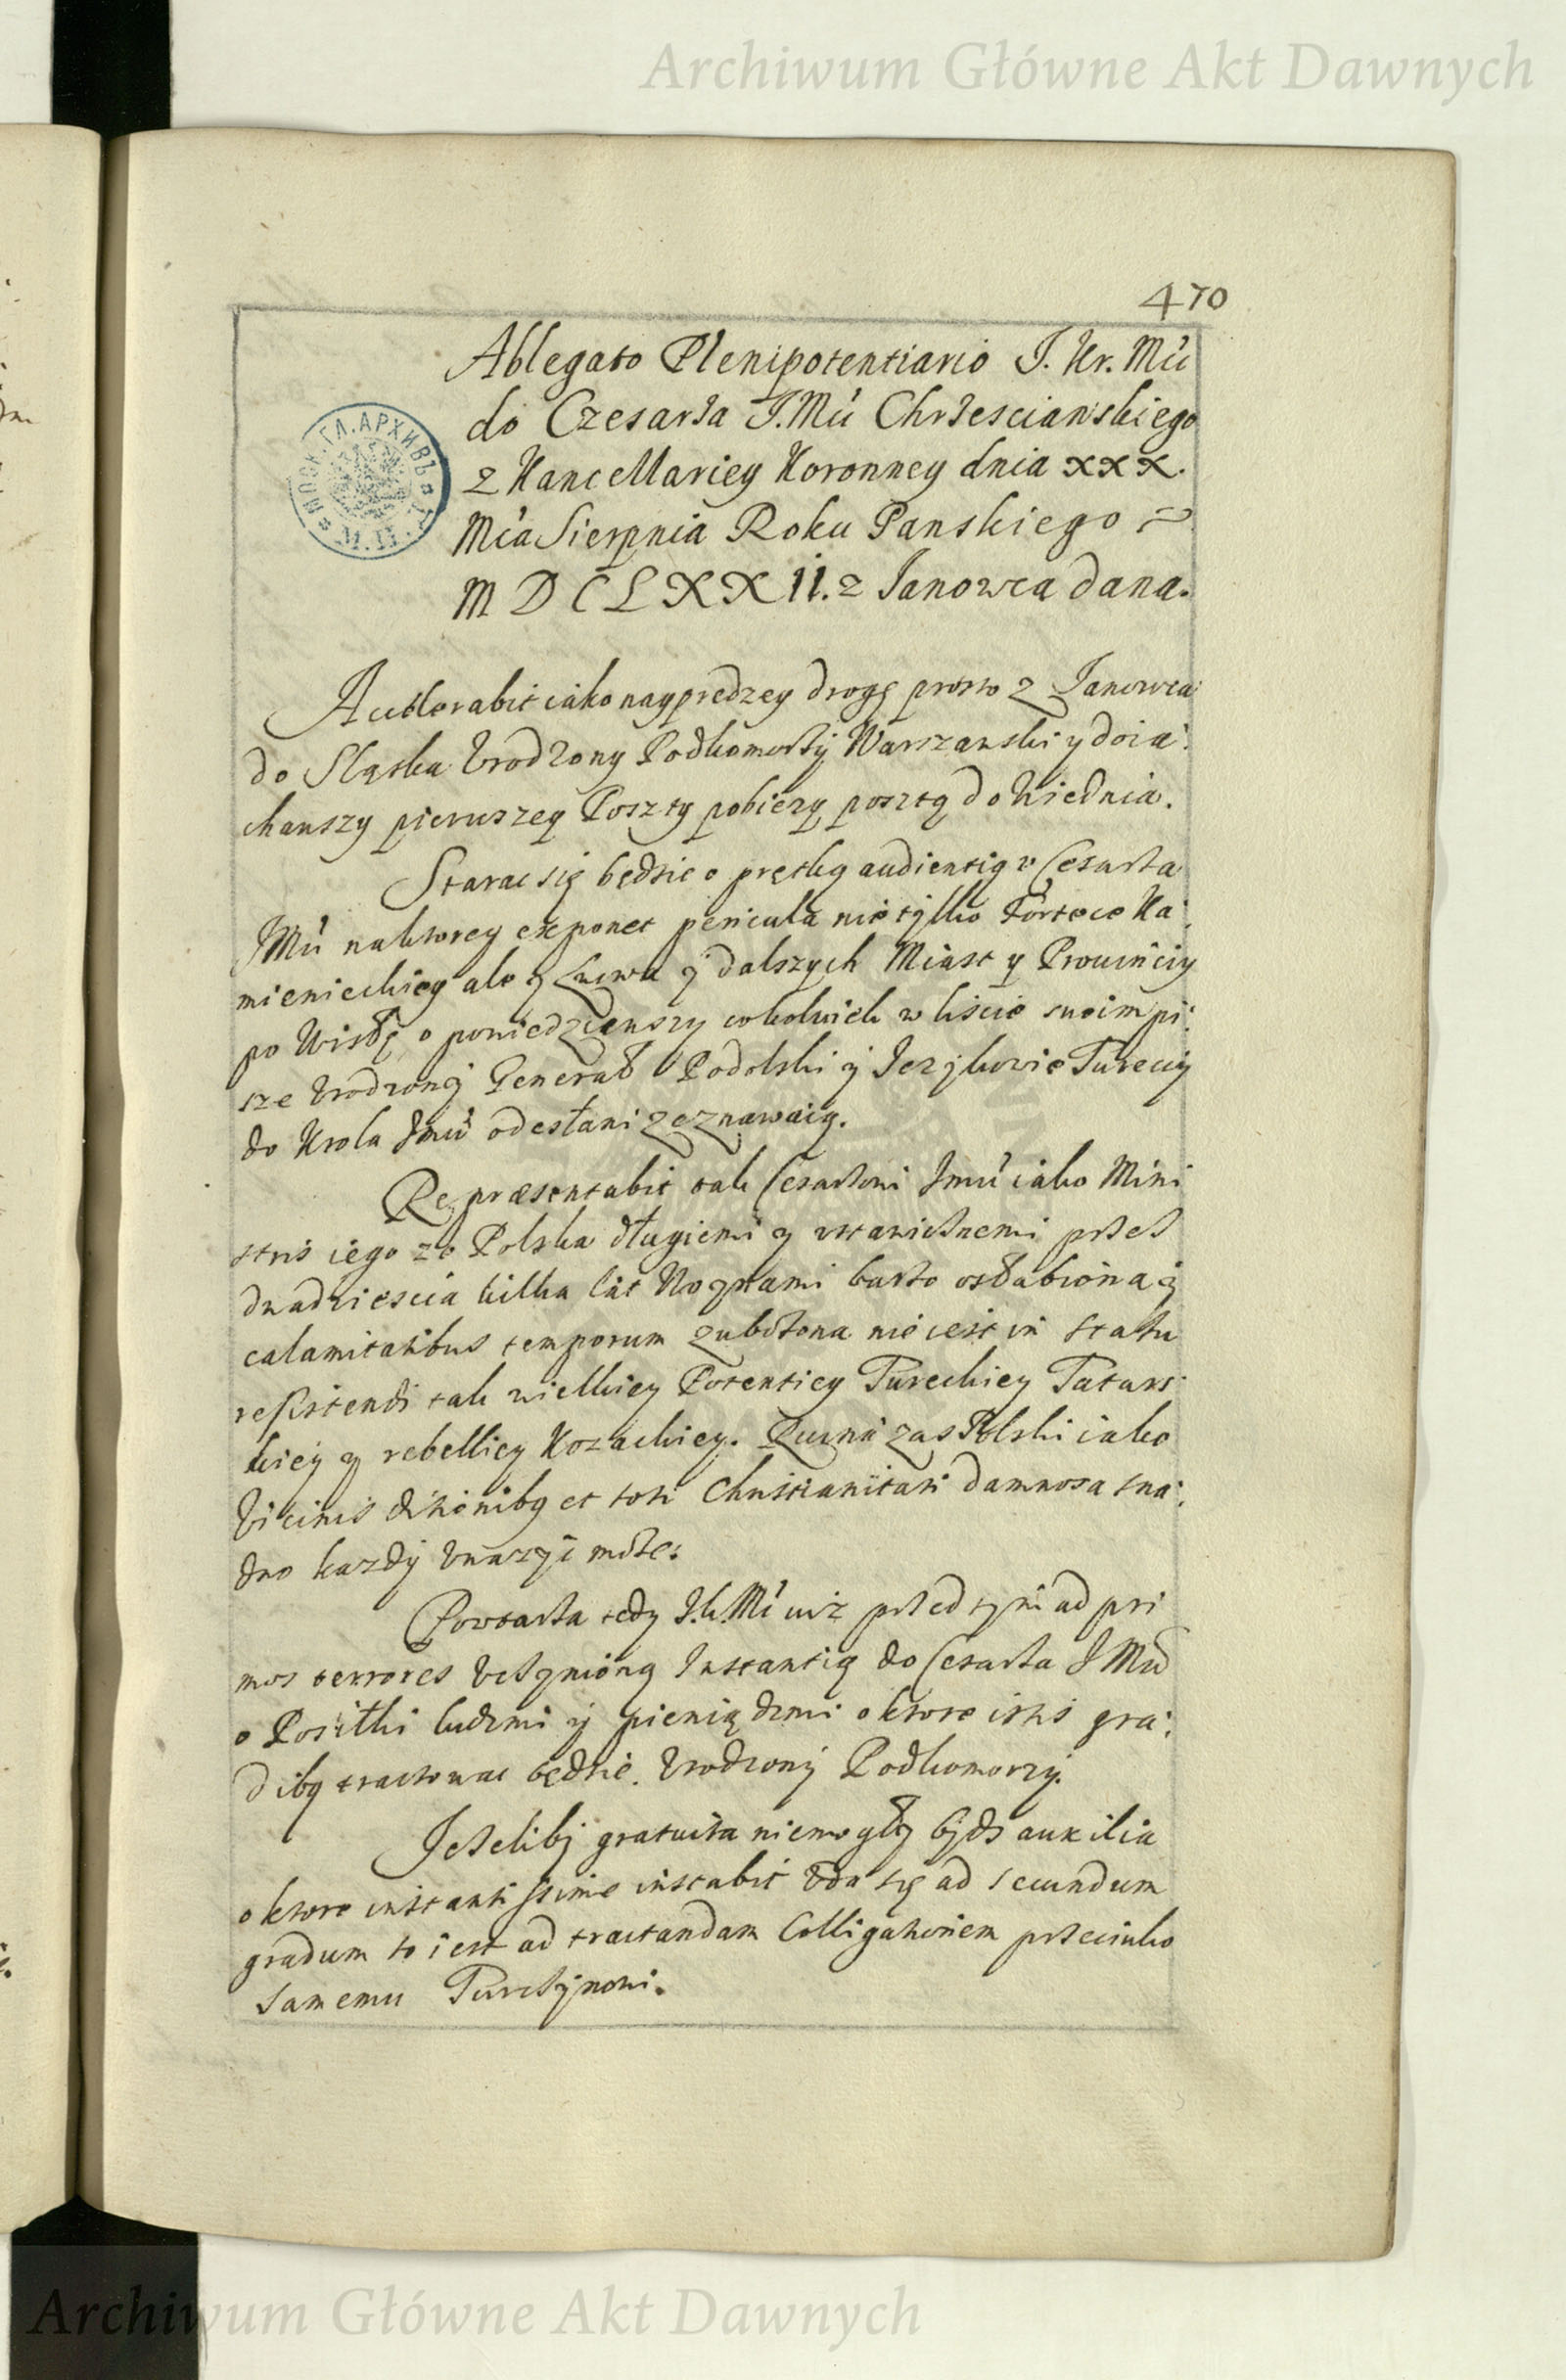 Archiwum Główne Akt Dawnych
470
Ablegato Plenipotentiario J. Kr. Mći
do Czesarza J. Mći Chrzescianskiego
z Kancellariey Koronney dnia xxx.
Mća Sierpnia Roku Panskiego
MDCLXXII. z Janowca dana.
МОСК. ГЛ. АРХИВЪ
Accelerabit iako nayprędzey drogę prosto z Janowca
do Sląska Vrodzony Podkomorzy Warszawski y doia:
chawszy pierwszey Poszty pobieży posztą do Wiednia.
Starac się będzie o prętką audientią v Cesarza
JMći na ktorey exponet pericula nie tylko Fortece Ka:
mienieckiey ale y Lwowa y dalszych Miast y Prowinciy
po Wisłę, o powiedziawszy cokolwiek w liscie swoim pi:
sze Vrodzony Generał Podolski y Jezykowie Tureccy
do Krola Jmći odesłani zeznawaią.
Repræsentabit tak Cesarzowi Jmći iako Mini
stris iego ze Polska długiemi y vstawicznemi przez
dwadziescia kilka lat Woynami barzo osłabiona y
calamitatibus temporum zubożona nie iest in statu
resistendi tak wielkiey Potentiey Tureckiey Tatars:
kiey y rebelliey Kozackiey. Ruina zas Polski iako
Vicinis ditionibq et toti Christianitati damnosa sna:
dno kazdy vwazyć może.
Powtarza tedy J.K.Mć iuż przed tym ad pri
mos terrores vczynioną Instantią do Cesarza J Mći
o Posiłki ludzmi y pieniądzmi o ktore istis gra:
dibq tractowac będzie Vrodzony Podkomorzy.
Jeżeliby gratuita niemogły bydz auxilia
o ktore instantissime instabit vda się ad secundum
gradum to iest ad tractandam Colligationem przeciwko
samemu Turczynowi.
Archiwum Główne Akt Dawnych